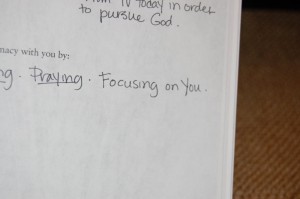 TV today in order
to pursue God.
macy with you by:
ng. Praying. Focusing on You.